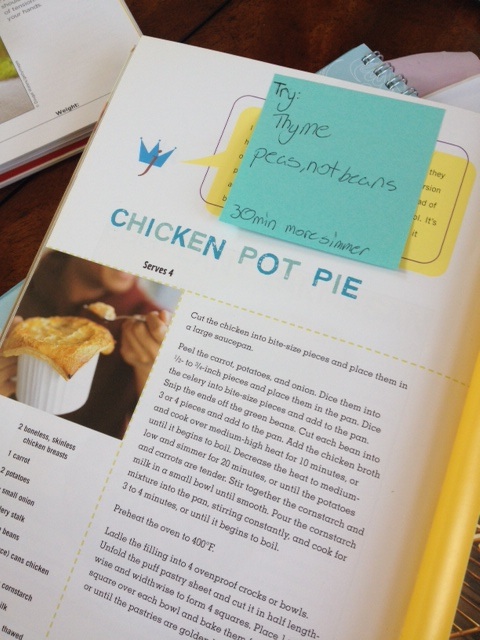 your hands.
Weight:
Try:
Thyme
peas, not beans
30min more simmer
they
rsion
ad of
ol. It's
it
CHICKEN POT PIE
Serves 4
Cut the chicken into bite-size pieces and place them in
a large saucepan.
Peel the carrot, potatoes, and onion. Dice them into
½- to ¾-inch pieces and place them in the pan. Dice
the celery into bite-size pieces and add to the pan.
Snip the ends off the green beans. Cut each bean into
3 or 4 pieces and add to the pan. Add the chicken broth
and cook over medium-high heat for 10 minutes, or
until it begins to boil. Decrease the heat to medium-
low and simmer for 20 minutes, or until the potatoes
and carrots are tender. Stir together the cornstarch and
milk in a small bowl until smooth. Pour the cornstarch
mixture into the pan, stirring constantly, and cook for
3 to 4 minutes, or until it begins to boil.
Preheat the oven to 400°F.
Ladle the filling into 4 ovenproof crocks or bowls.
Unfold the puff pastry sheet and cut it in half length-
wise and widthwise to form 4 squares. Place 1
square over each bowl and bake them
or until the pastries are golden
2 boneless, skinless
chicken breasts
1 carrot
2 potatoes
small onion
ery stalk
beans
ce) cans chicken
cornstarch
ilk
thawed